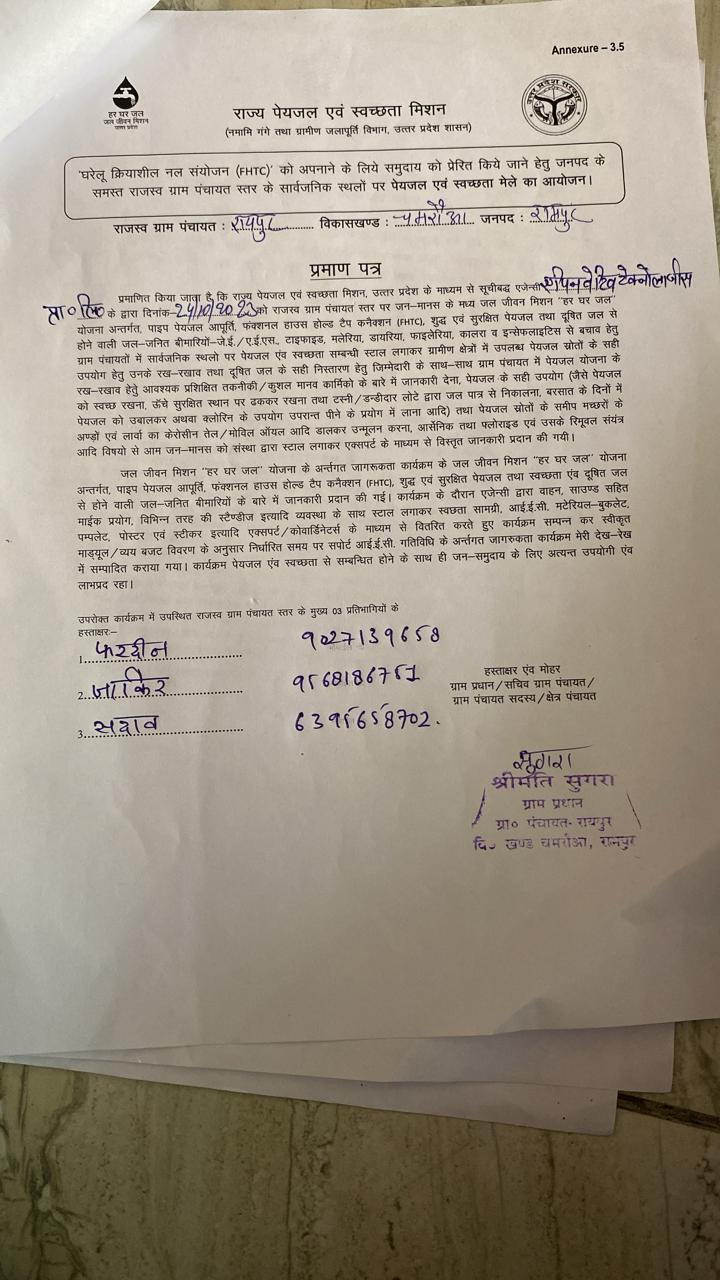 Annexure – 3.5
हर घर जल
जल जीवन मिशन
उत्तर प्रदेश सरकार
राज्य पेयजल एवं स्वच्छता मिशन
(नमामि गंगे तथा ग्रामीण जलापूर्ति विभाग, उत्तर प्रदेश शासन)
'घरेलू क्रियाशील नल संयोजन (FHTC)' को अपनाने के लिये समुदाय को प्रेरित किये जाने हेतु जनपद के
समस्त राजस्व ग्राम पंचायत स्तर के सार्वजनिक स्थलों पर पेयजल एवं स्वच्छता मेले का आयोजन।
राजस्व ग्राम पंचायत : रायपुर विकासखण्ड : चमरौआ जनपद : रामपुर
प्रमाण पत्र
प्रमाणित किया जाता है कि राज्य पेयजल एवं स्वच्छता मिशन, उत्तर प्रदेश के माध्यम से सूचीबद्ध एजेन्सी
प्रा० लि० के द्वारा दिनांक-24/10/2023 को राजस्व ग्राम पंचायत स्तर पर जन-मानस के मध्य जल जीवन मिशन "हर घर जल"
योजना अन्तर्गत, पाइप पेयजल आपूर्ति, फंक्शनल हाउस होल्ड टैप कनैक्शन (FHTC), शुद्ध एवं सुरक्षित पेयजल तथा दूषित जल से
होने वाली जल-जनित बीमारियों-जे.ई./ए.ई.एस., टाइफाइड, मलेरिया, डायरिया, फाइलेरिया, कालरा व इन्सेफलाइटिस से बचाव हेतु
ग्राम पंचायतों में सार्वजनिक स्थलो पर पेयजल एंव स्वच्छता सम्बन्धी स्टाल लगाकर ग्रामीण क्षेत्रों में उपलब्ध पेयजल स्रोतों के सही
उपयोग हेतु उनके रख-रखाव तथा दूषित जल के सही निस्तारण हेतु जिम्मेदारी के साथ-साथ ग्राम पंचायत में पेयजल योजना के
रख-रखाव हेतु आवश्यक प्रशिक्षित तकनीकी/कुशल मानव कार्मिको के बारे में जानकारी देना, पेयजल के सही उपयोग (जैसे पेयजल
को स्वच्छ रखना, ऊँचे सुरक्षित स्थान पर ढककर रखना तथा टस्नी/डन्डीदार लोटे द्वारा जल पात्र से निकालना, बरसात के दिनों में
पेयजल को उबालकर अथवा क्लोरिन के उपयोग उपरान्त पीने के प्रयोग में लाना आदि) तथा पेयजल स्रोतों के समीप मच्छरों के
अण्डों एवं लार्वा का केरोसीन तेल/मोविल ऑयल आदि डालकर उन्मूलन करना, आर्सेनिक तथा फ्लोराइड एवं उसके रिमूवल संयंत्र
आदि विषयो से आम जन-मानस को संस्था द्वारा स्टाल लगाकर एक्सपर्ट के माध्यम से विस्तृत जानकारी प्रदान की गयी।
जल जीवन मिशन "हर घर जल" योजना के अर्न्तगत जागरूकता कार्यक्रम के जल जीवन मिशन "हर घर जल" योजना
अन्तर्गत, पाइप पेयजल आपूर्ति, फंक्शनल हाउस होल्ड टैप कनैक्शन (FHTC), शुद्ध एवं सुरक्षित पेयजल तथा स्वच्छता एंव दूषित जल
से होने वाली जल-जनित बीमारियों के बारे में जानकारी प्रदान की गई। कार्यक्रम के दौरान एजेन्सी द्वारा वाहन, साउण्ड सहित
माईक प्रयोग, विभिन्न तरह की स्टैण्डीज इत्यादि व्यवस्था के साथ स्टाल लगाकर स्वछता सामग्री, आई.ई.सी. मटेरियल-बुकलेट,
पम्पलेट, पोस्टर एवं स्टीकर इत्यादि एक्सपर्ट/कोवार्डिनेटर्स के माध्यम से वितरित करते हुए कार्यक्रम सम्पन्न कर स्वीकृत
माड्यूल/व्यय बजट विवरण के अनुसार निर्धारित समय पर सपोर्ट आई.ई.सी. गतिविधि के अर्न्तगत जागरुकता कार्यक्रम मेरी देख-रेख
में सम्पादित कराया गया। कार्यक्रम पेयजल एंव स्वच्छता से सम्बन्धित होने के साथ ही जन-समुदाय के लिए अत्यन्त उपयोगी एंव
लाभप्रद रहा।
उपरोक्त कार्यक्रम में उपस्थित राजस्व ग्राम पंचायत स्तर के मुख्य 03 प्रतिभागियों के
हस्ताक्षरः–
1. फरदीन 9027139658
2. जाकिर 9568186751
3. सद्दाव 6395658702.
हस्ताक्षर एंव मोहर
ग्राम प्रधान/सचिव ग्राम पंचायत/
ग्राम पंचायत सदस्य/क्षेत्र पंचायत
सुगरा
श्रीमति सुगरा
ग्राम प्रधान
ग्रा० पंचायत- रायपुर
वि० खण्ड चमरौआ, रामपुर